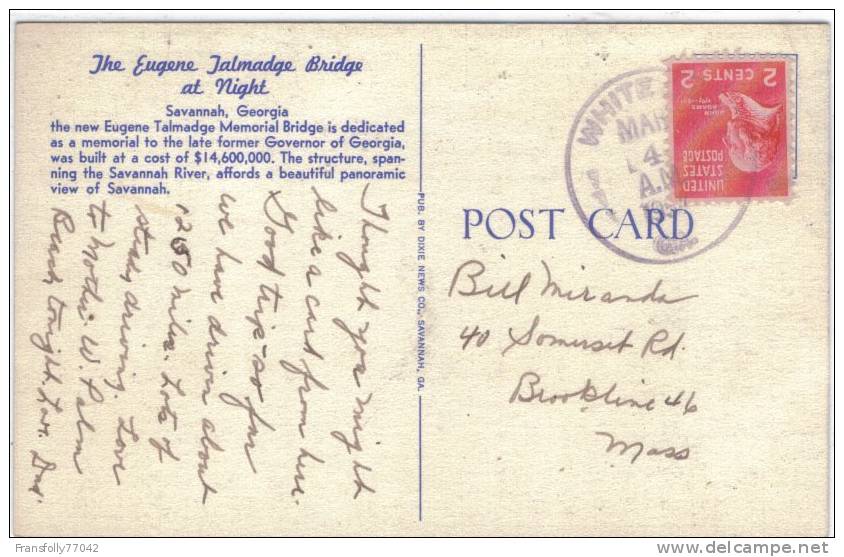 The Eugene Talmadge Bridge
at Night
Savannah, Georgia
the new Eugene Talmadge Memorial Bridge is dedicated
as a memorial to the late former Governor of Georgia,
was built at a cost of $14,600,000. The structure, span-
ning the Savannah River, affords a beautiful panoramic
view of Savannah.
Thought you might
like a card from here.
Good trip - so far
we have driven about
1250 miles. Lots of
steady driving. Love
to Mother. W. Palm
Beach tonight. Love.
PUB. BY DIXIE NEWS CO., SAVANNAH, GA.
POST CARD
WHITE
MAR
4
A.M.
UNITED
STATES
POSTAGE
JOHN
ADAMS
2 CENTS 2
Bill Miranda
40 Somerset Rd.
Brookline 46
Mass
Fransfolly77042
www.delcampe.net